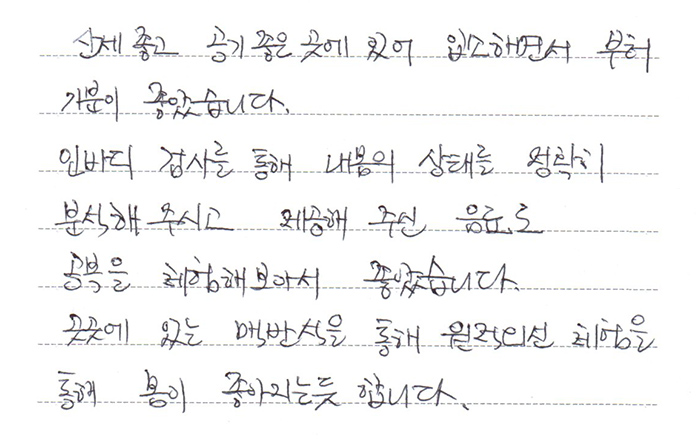 산세 좋고 공기 좋은 곳에 있어 입소해면서 부터
기분이 좋았습니다.
인바디 검사를 통해 내몸의 상태를 정확히
분석해 주시고 제공해 주신 음료도
공복을 체험해보아서 좋았습니다.
곳곳에 있는 맥반석을 통해 원적외선 체험을
통해 몸이 좋아지는듯 합니다.